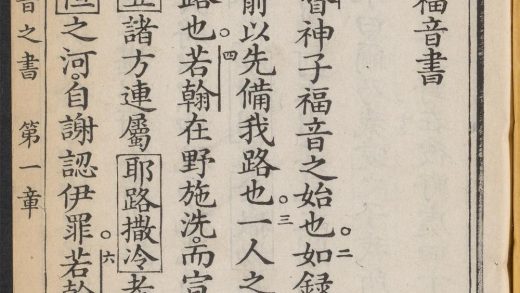 福音書
督神子福音之始也。二如録
前以先備我路也。三一人之
路也。四若翰在野施洗。而宣
諸方連屬耶路撒冷者
但之河。自謝認伊罪。六若翰
音之書 第一章